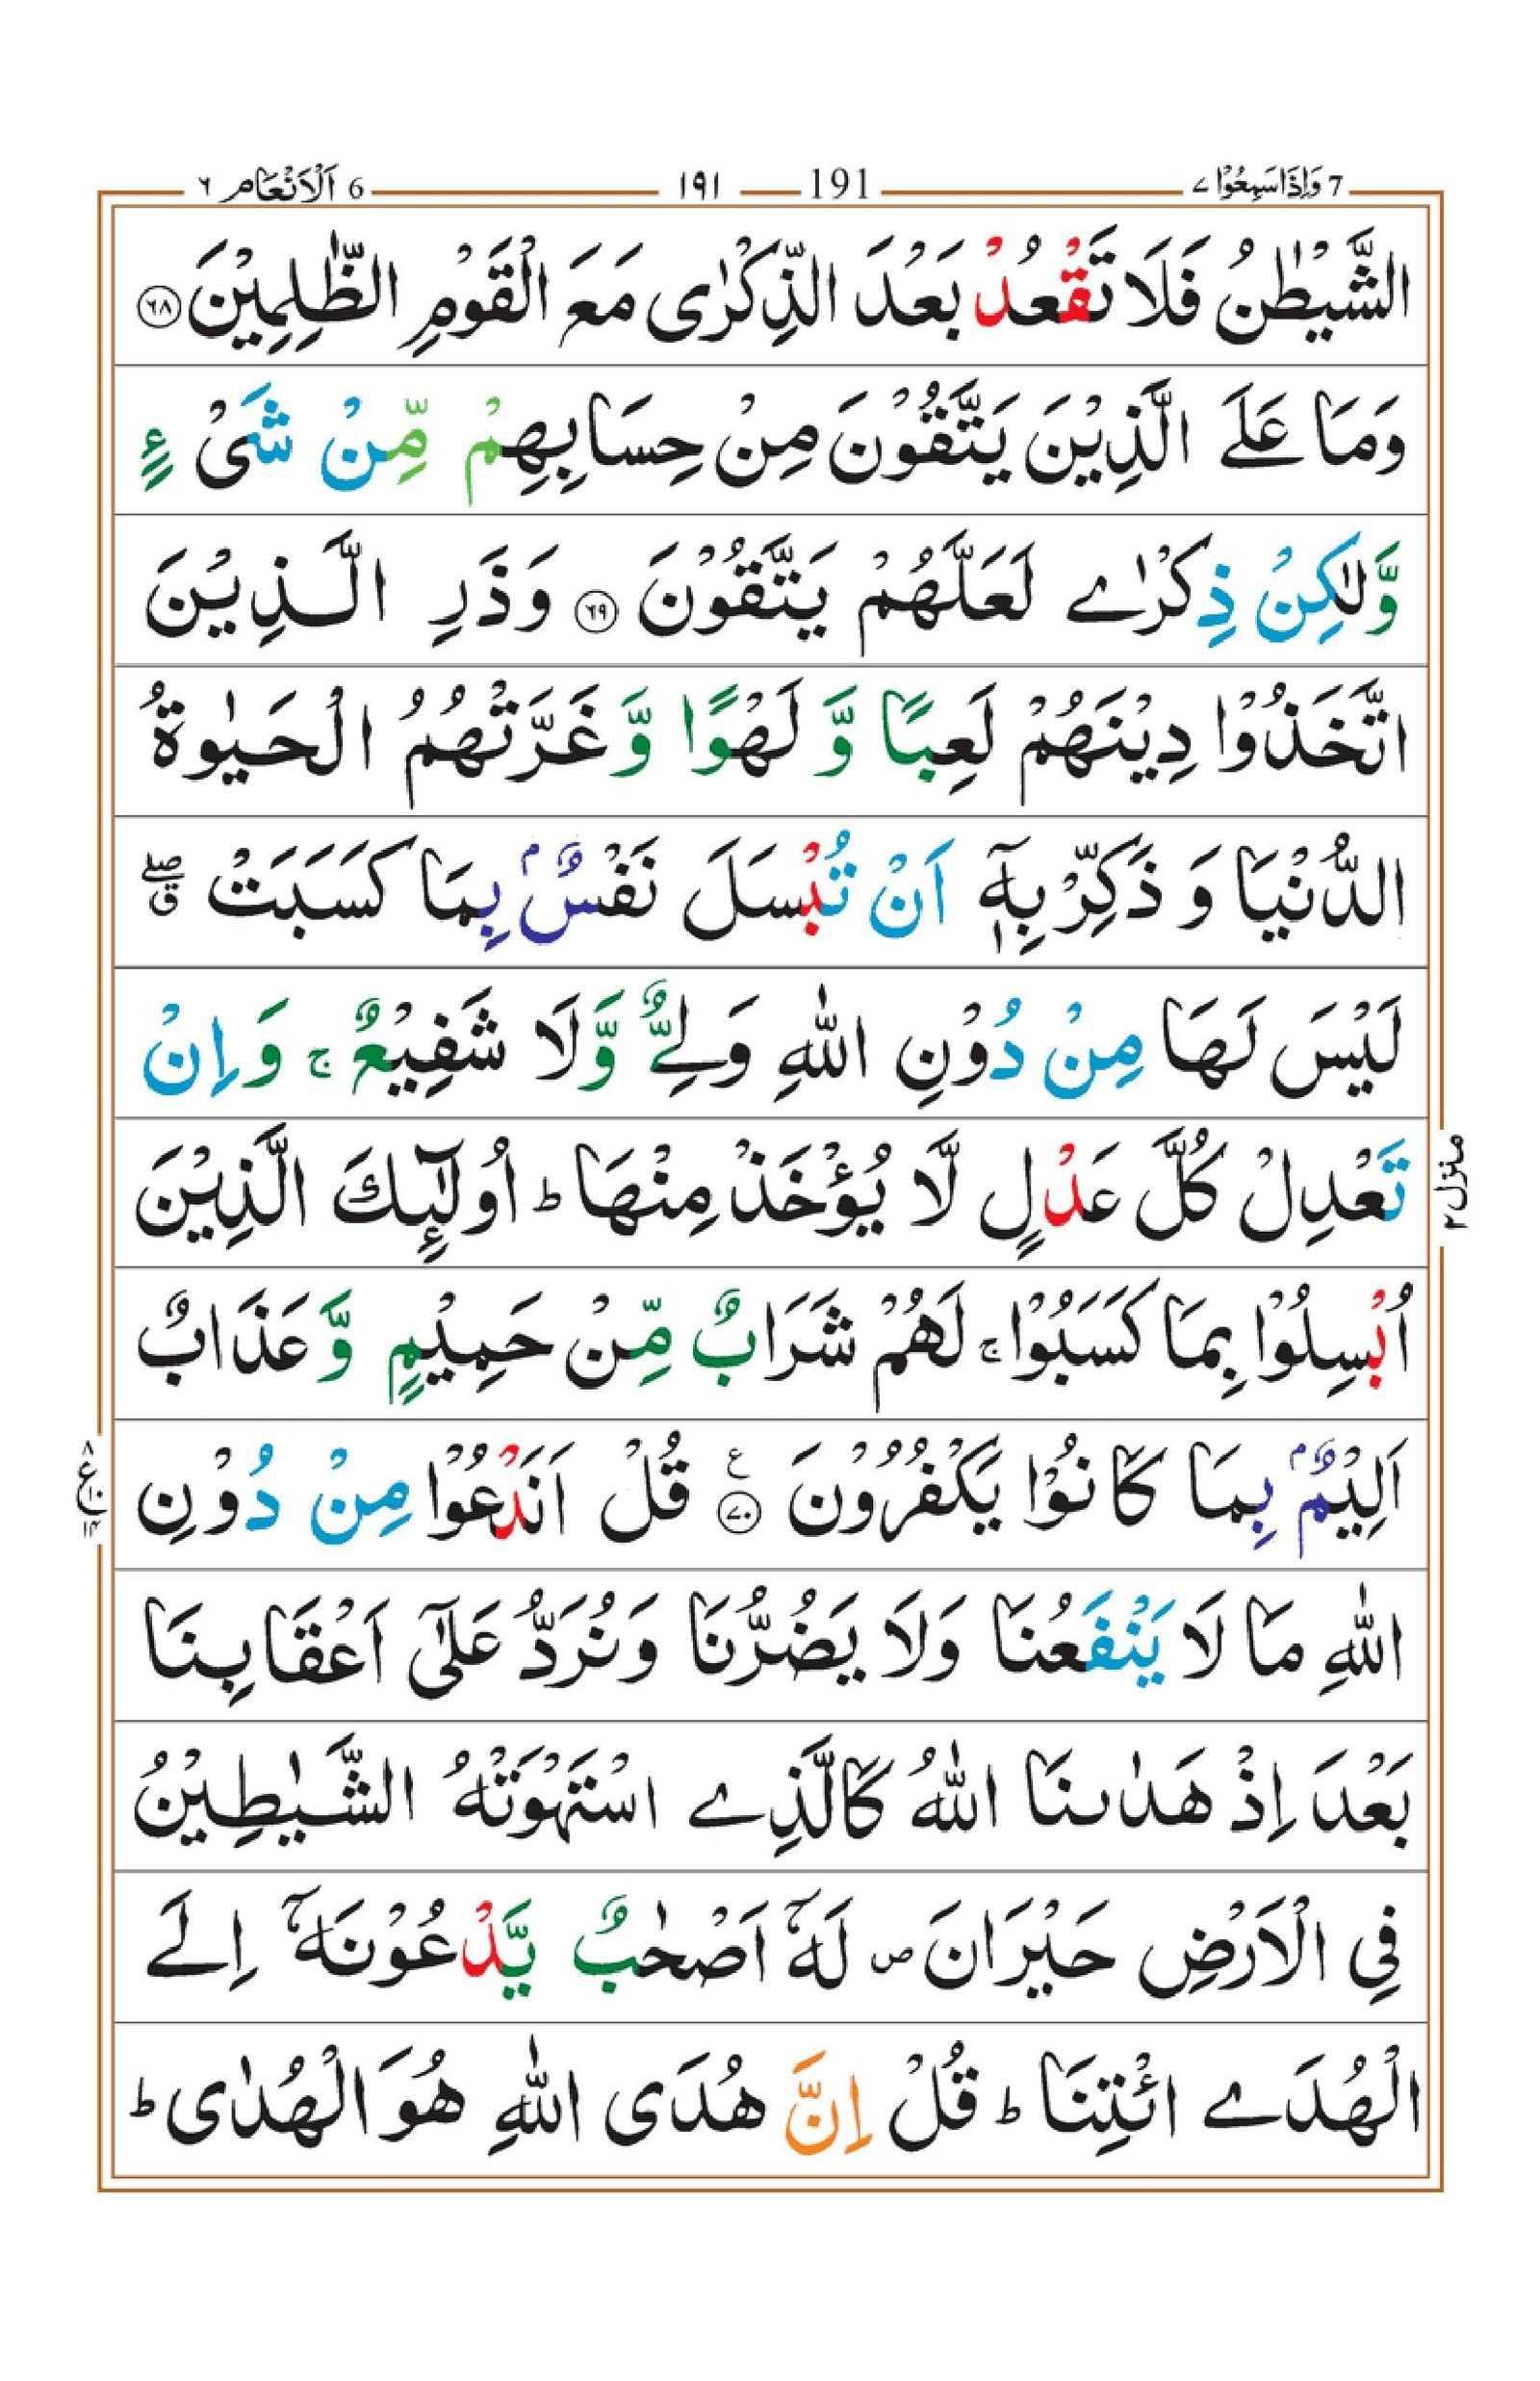 7 وَاِذَا سَمِعُوْا ٧ 191 ١٩١ 6 اَلْاَنْعَام ٦
الشَّيْطٰنُ فَلَا تَقْعُدْ بَعْدَ الذِّكْرٰى مَعَ الْقَوْمِ الظّٰلِمِيْنَ ۝٦٨
وَمَا عَلَى الَّذِيْنَ يَتَّقُوْنَ مِنْ حِسَابِهِمْ مِّنْ شَىْءٍ
وَّلٰكِنْ ذِكْرٰى لَعَلَّهُمْ يَتَّقُوْنَ ۝٦٩ وَذَرِ الَّذِيْنَ
اتَّخَذُوْا دِيْنَهُمْ لَعِبًا وَّ لَهْوًا وَّ غَرَّتْهُمُ الْحَيٰوةُ
الدُّنْيَا وَ ذَكِّرْ بِهٖٓ اَنْ تُبْسَلَ نَفْسٌۢ بِمَا كَسَبَتْ ۖق
لَيْسَ لَهَا مِنْ دُوْنِ اللّٰهِ وَلِىٌّ وَّلَا شَفِيْعٌ ۚ وَاِنْ
تَعْدِلْ كُلَّ عَدْلٍ لَّا يُؤْخَذْ مِنْهَا ؕ اُولٰٓئِكَ الَّذِيْنَ
اُبْسِلُوْا بِمَا كَسَبُوْا ۚ لَهُمْ شَرَابٌ مِّنْ حَمِيْمٍ وَّ عَذَابٌ
اَلِيْمٌۢ بِمَا كَانُوْا يَكْفُرُوْنَ ۝٧٠ ع قُلْ اَنَدْعُوْا مِنْ دُوْنِ
اللّٰهِ مَا لَا يَنْفَعُنَا وَلَا يَضُرُّنَا وَنُرَدُّ عَلٰٓى اَعْقَابِنَا
بَعْدَ اِذْ هَدٰىنَا اللّٰهُ كَالَّذِى اسْتَهْوَتْهُ الشَّيٰطِيْنُ
فِى الْاَرْضِ حَيْرَانَ ص لَهٗٓ اَصْحٰبٌ يَّدْعُوْنَهٗٓ اِلَى
الْهُدَى ائْتِنَا ؕ قُلْ اِنَّ هُدَى اللّٰهِ هُوَ الْهُدٰى ؕ
منزل ٢
٨ ع ١٠ ١٤